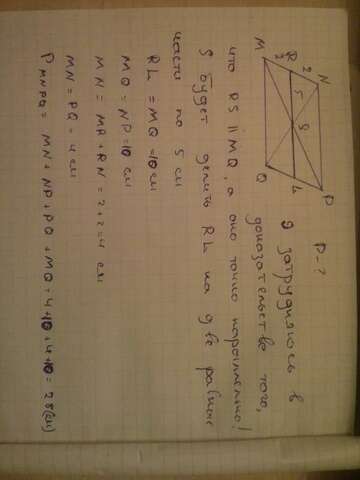 M R N
2 2
5
S
Q L P
P - ?
Я затрудняюсь в
доказательстве того,
что RS || MQ, а оно точно параллельно!
S будет делить RL на две равные
части по 5 см
RL = MQ = 10 см
MQ = NP = 10 см
MN = MR + RN = 2 + 2 = 4 см
MN = PQ = 4 см
P MNPQ = MN + NP + PQ + MQ = 4 + 10 + 4 + 10 = 28 (см)